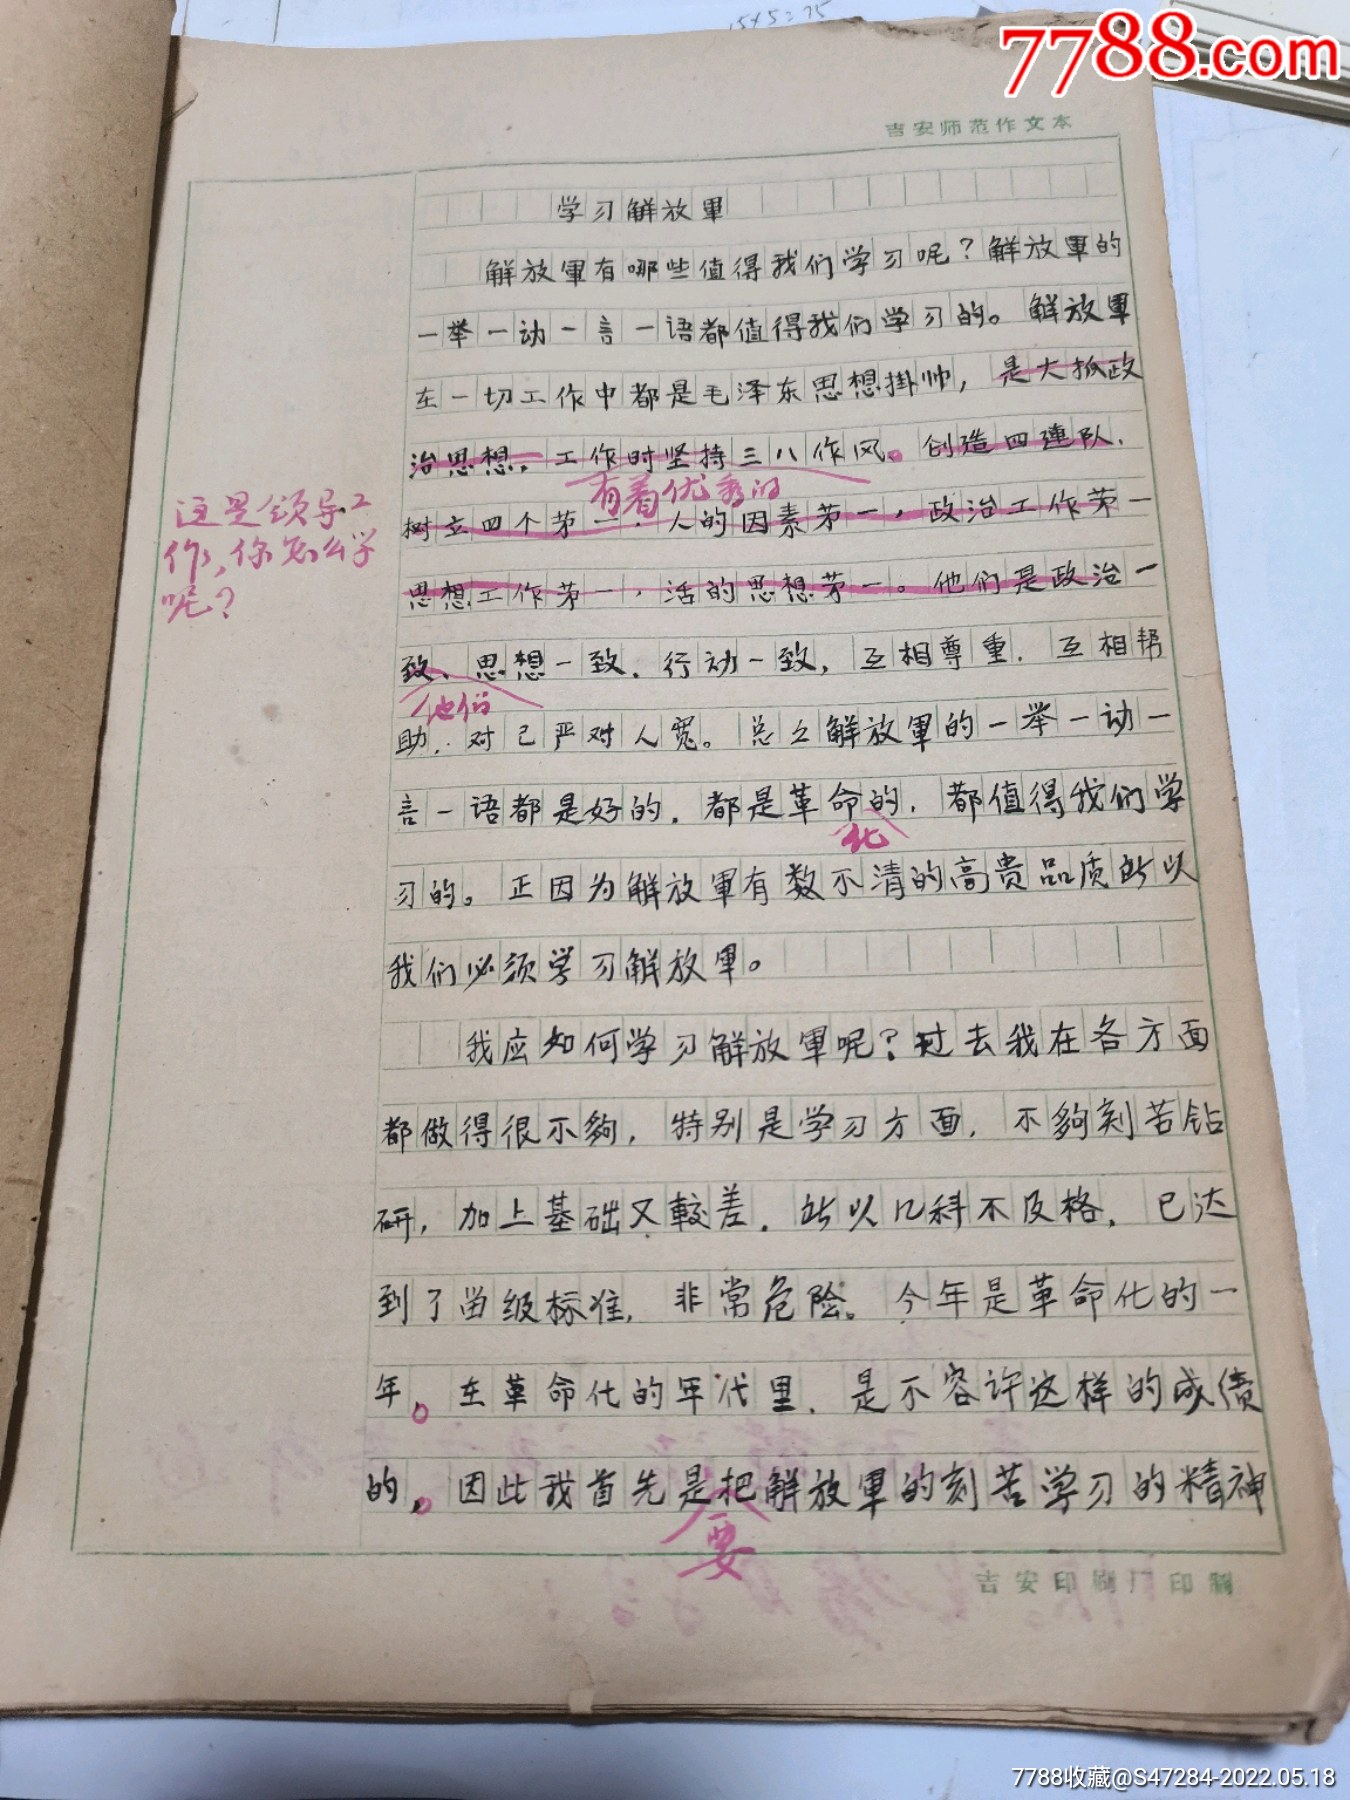 15×5=75
7788.com
吉安师范作文本
学习解放軍
解放軍有哪些值得我们学习呢？解放軍的
一举一动一言一语都值得我们学习的。解放軍
在一切工作中都是毛泽东思想掛帅，是大抓政
治思想，工作时坚持三八作风。创造四連队，
有着优秀的
树立四个第一，人的因素第一，政治工作第一
思想工作第一，活的思想第一。他们是政治一
这是领导工
作，你怎么学
呢？
致、思想一致、行动一致，互相尊重、互相帮
他们
助，对己严对人宽。总之解放軍的一举一动一
言一语都是好的，都是革命的，都值得我们学
化
习的。正因为解放軍有数不清的高贵品质所以
我们必须学习解放軍。
我应如何学习解放軍呢？过去我在各方面
都做得很不夠，特别是学习方面，不夠刻苦钻
研，加上基础又較差，所以几科不及格，已达
到了留级标准，非常危险。今年是革命化的一
年。在革命化的年代里，是不容许这样的成绩
的。因此我首先是把解放軍的刻苦学习的精神
要
吉安印刷厂印制
7788收藏@S47284-2022.05.18